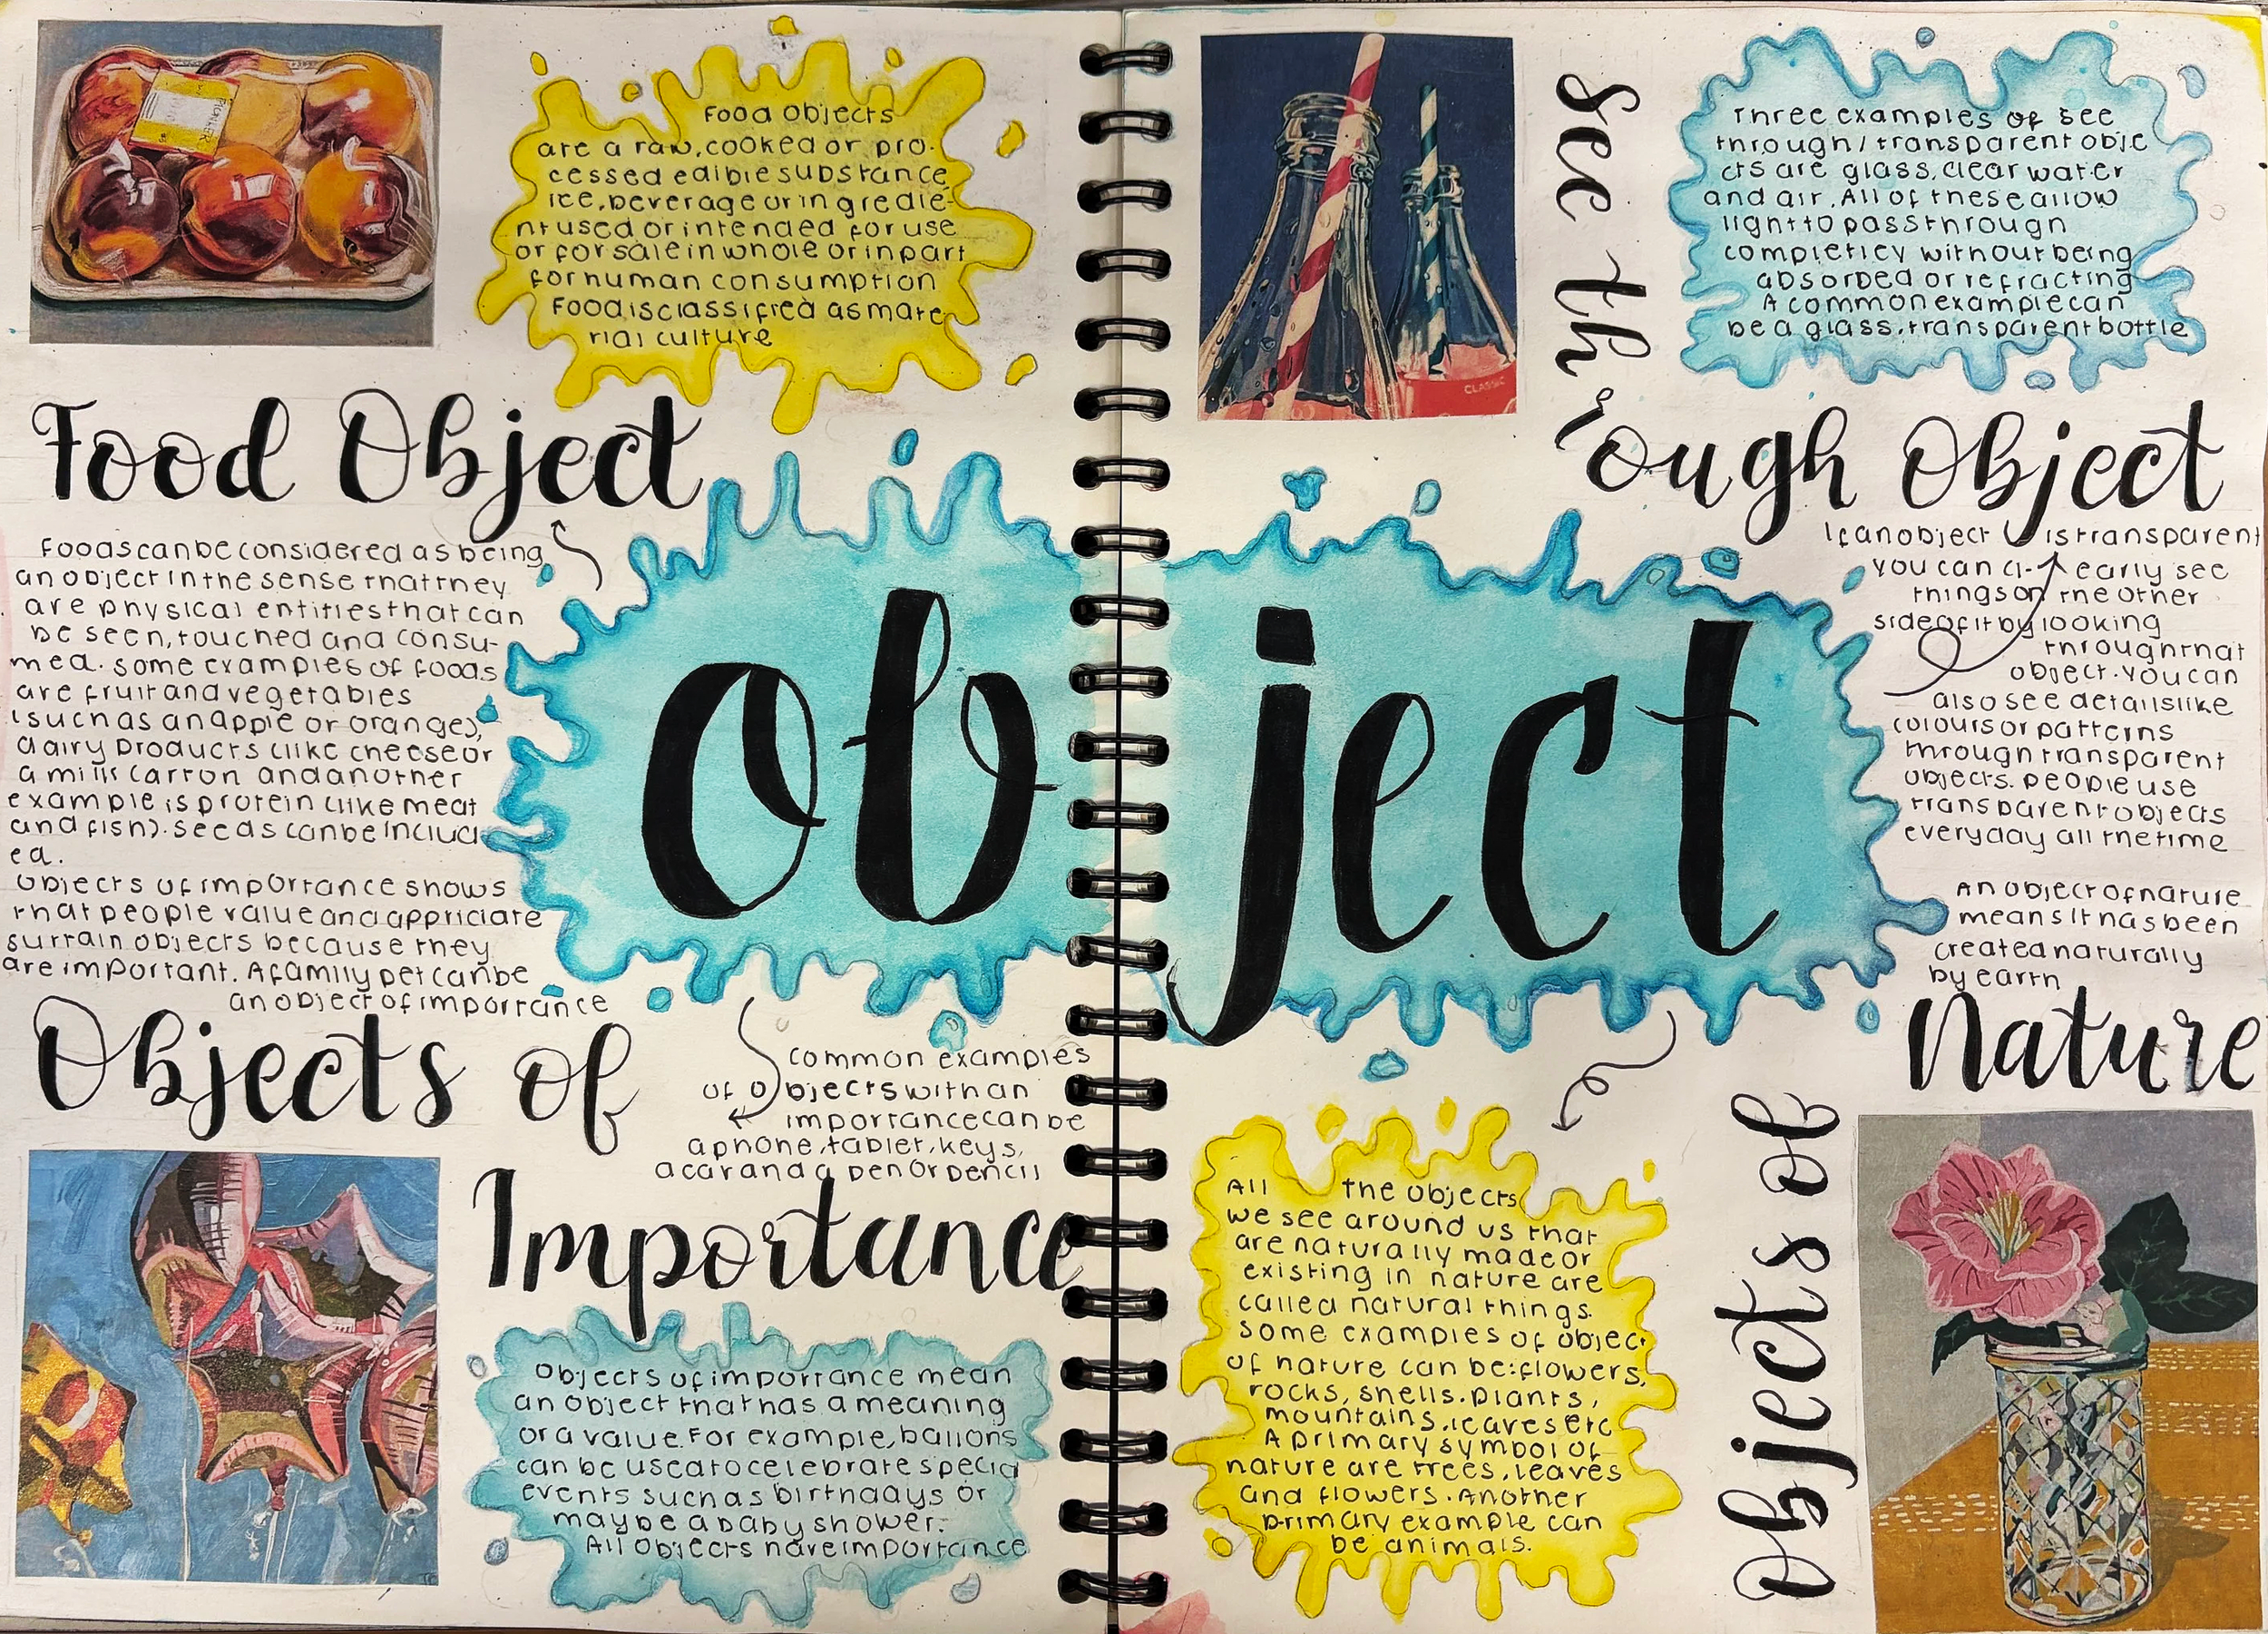 Food Objects
are a raw, cooked or pro-
cessed edible substance
ice, beverage or ingredie-
nt used or intended for use
or for sale in whole or in part
for human consumption
Food is classified as mate
rial culture
Food Object
Foods can be considered as being
an object in the sense that they
are physical entities that can
be seen, touched and consu-
med. some examples of foods
are fruit and vegetables
(such as an apple or orange),
dairy products (like cheese or
a milk carton and another
example is protein (like meat
and fish). seeds can be includ
ed.
objects of importance shows
that people value and appriciate
surtain objects because they
are important. A family pet can be
an object of importance
Objects of
Importance
common examples
of objects with an
importance can be
a phone, tablet, keys,
a car and a pen or pencil
Objects of importance mean
an object that has a meaning
or a value. For example, ballons
can be used to celebrate special
events such as birthdays or
maybe a baby shower.
All objects have importance
object
CLASSIC
See through Object
Three examples of see
through / transparent obje
cts are glass, clear water
and air. All of these allow
light to pass through
completley without being
absorbed or refracting
A common example can
be a glass, transparent bottle
If an object is transparent
you can cl- early see
things on the other
side of it by looking
through that
object. You can
also see details like
colours or patterns
through transparent
objects. people use
transparent objects
everyday all the time
An object of nature
means it has been
created naturally
by earth
Objects of Nature
All the objects
we see around us that
are naturally made or
existing in nature are
called natural things.
some examples of object
of nature can be: flowers,
rocks, shells. plants,
mountains, leaves etc
A primary symbol of
nature are trees, leaves
and flowers. Another
primary example can
be animals.